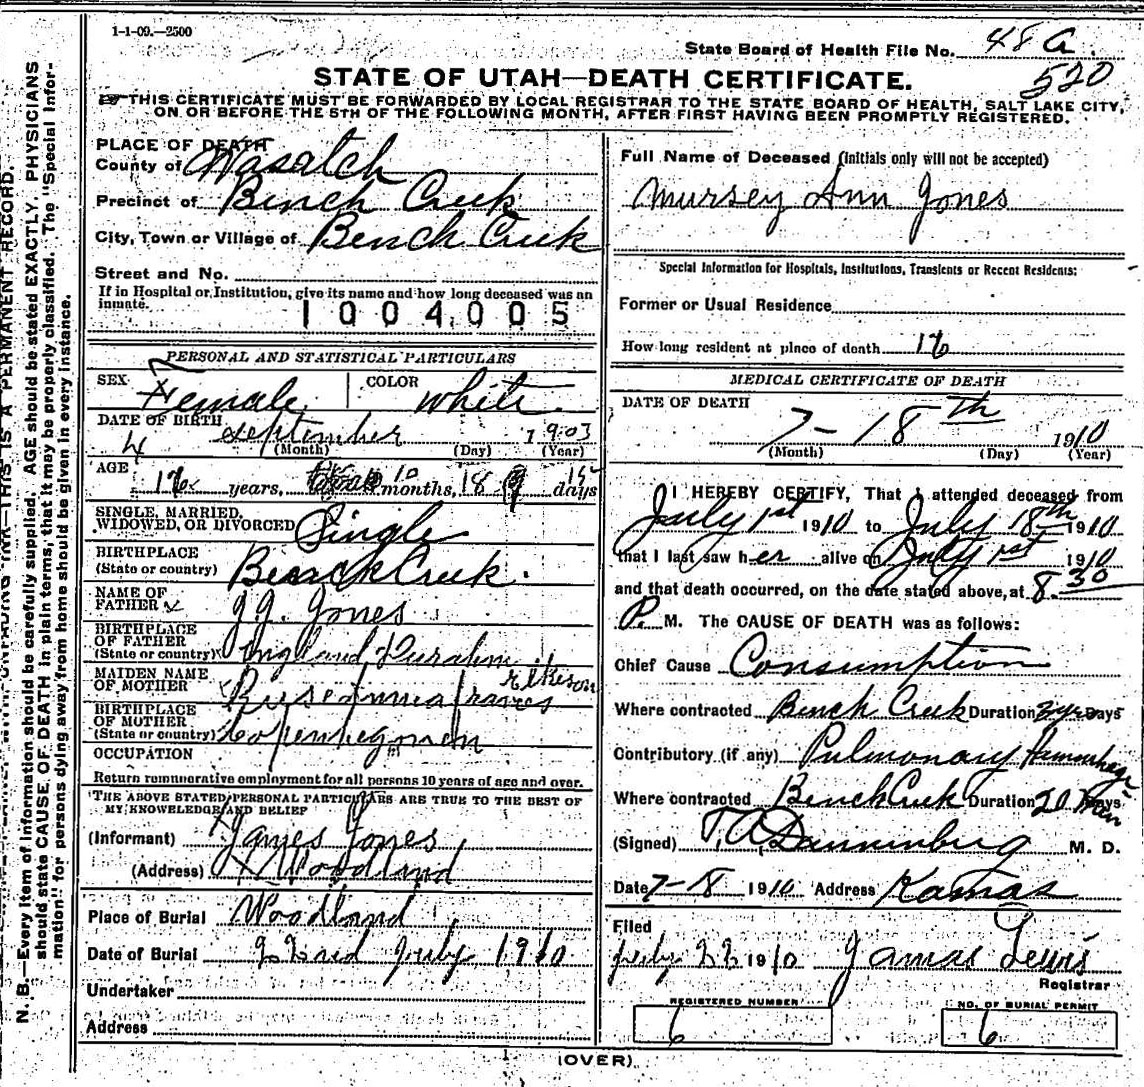 1-1-09.—2500
State Board of Health File No. 48 a
520
STATE OF UTAH—DEATH CERTIFICATE.
THIS CERTIFICATE MUST BE FORWARDED BY LOCAL REGISTRAR TO THE STATE BOARD OF HEALTH, SALT LAKE CITY,
ON OR BEFORE THE 5TH OF THE FOLLOWING MONTH, AFTER FIRST HAVING BEEN PROMPTLY REGISTERED.
PLACE OF DEATH
County of Wasatch
Precinct of Bench Creek
City, Town or Village of Bench Creek
Street and No.
If in Hospital or Institution, give its name and how long deceased was an
inmate.
1004005
PERSONAL AND STATISTICAL PARTICULARS
SEX Female COLOR White
DATE OF BIRTH
4 September 1903
(Month) (Day) (Year)
AGE
years, 10 months, 18 days
15
SINGLE, MARRIED,
WIDOWED, OR DIVORCED Single
BIRTHPLACE
(State or country) Bench Creek.
NAME OF
FATHER J. J. Jones
BIRTHPLACE
OF FATHER
(State or country) England
MAIDEN NAME
OF MOTHER
BIRTHPLACE
OF MOTHER
(State or country)
OCCUPATION
Return remunerative employment for all persons 10 years of age and over.
THE ABOVE STATED PERSONAL PARTICULARS ARE TRUE TO THE BEST OF
MY KNOWLEDGE AND BELIEF
(Informant) James Jones
(Address) Woodland
Place of Burial Woodland
Date of Burial 22nd July 1910
Undertaker
Address
Full Name of Deceased (Initials only will not be accepted)
Mursey Ann Jones
Special Information for Hospitals, Institutions, Transients or Recent Residents:
Former or Usual Residence
How long resident at place of death
MEDICAL CERTIFICATE OF DEATH
DATE OF DEATH
7-18th 1910
(Month) (Day) (Year)
I HEREBY CERTIFY, That I attended deceased from
July 1st 1910 to July 18th 1910
that I last saw her alive on July 1st 1910
and that death occurred, on the date stated above, at 8.30
P. M. The CAUSE OF DEATH was as follows:
Chief Cause Consumption
Where contracted Bench Creek Duration 3 yrs Days
Contributory (if any) Pulmonary Hemmorhage
Where contracted Bench Creek Duration 20 Min Days
(Signed) M. D.
Date 7-18 1910 Address Kamas
Filed
July 22 1910 James Lewis
Registrar
REGISTERED NUMBER
6
NO. OF BURIAL PERMIT
6
(OVER)
N. B.—Every item of information should be carefully supplied. AGE should be stated EXACTLY. PHYSICIANS
should state CAUSE OF DEATH in plain terms, that it may be properly classified. The "Special Infor-
mation" for persons dying away from home should be given in every instance.
THIS IS A PERMANENT RECORD.